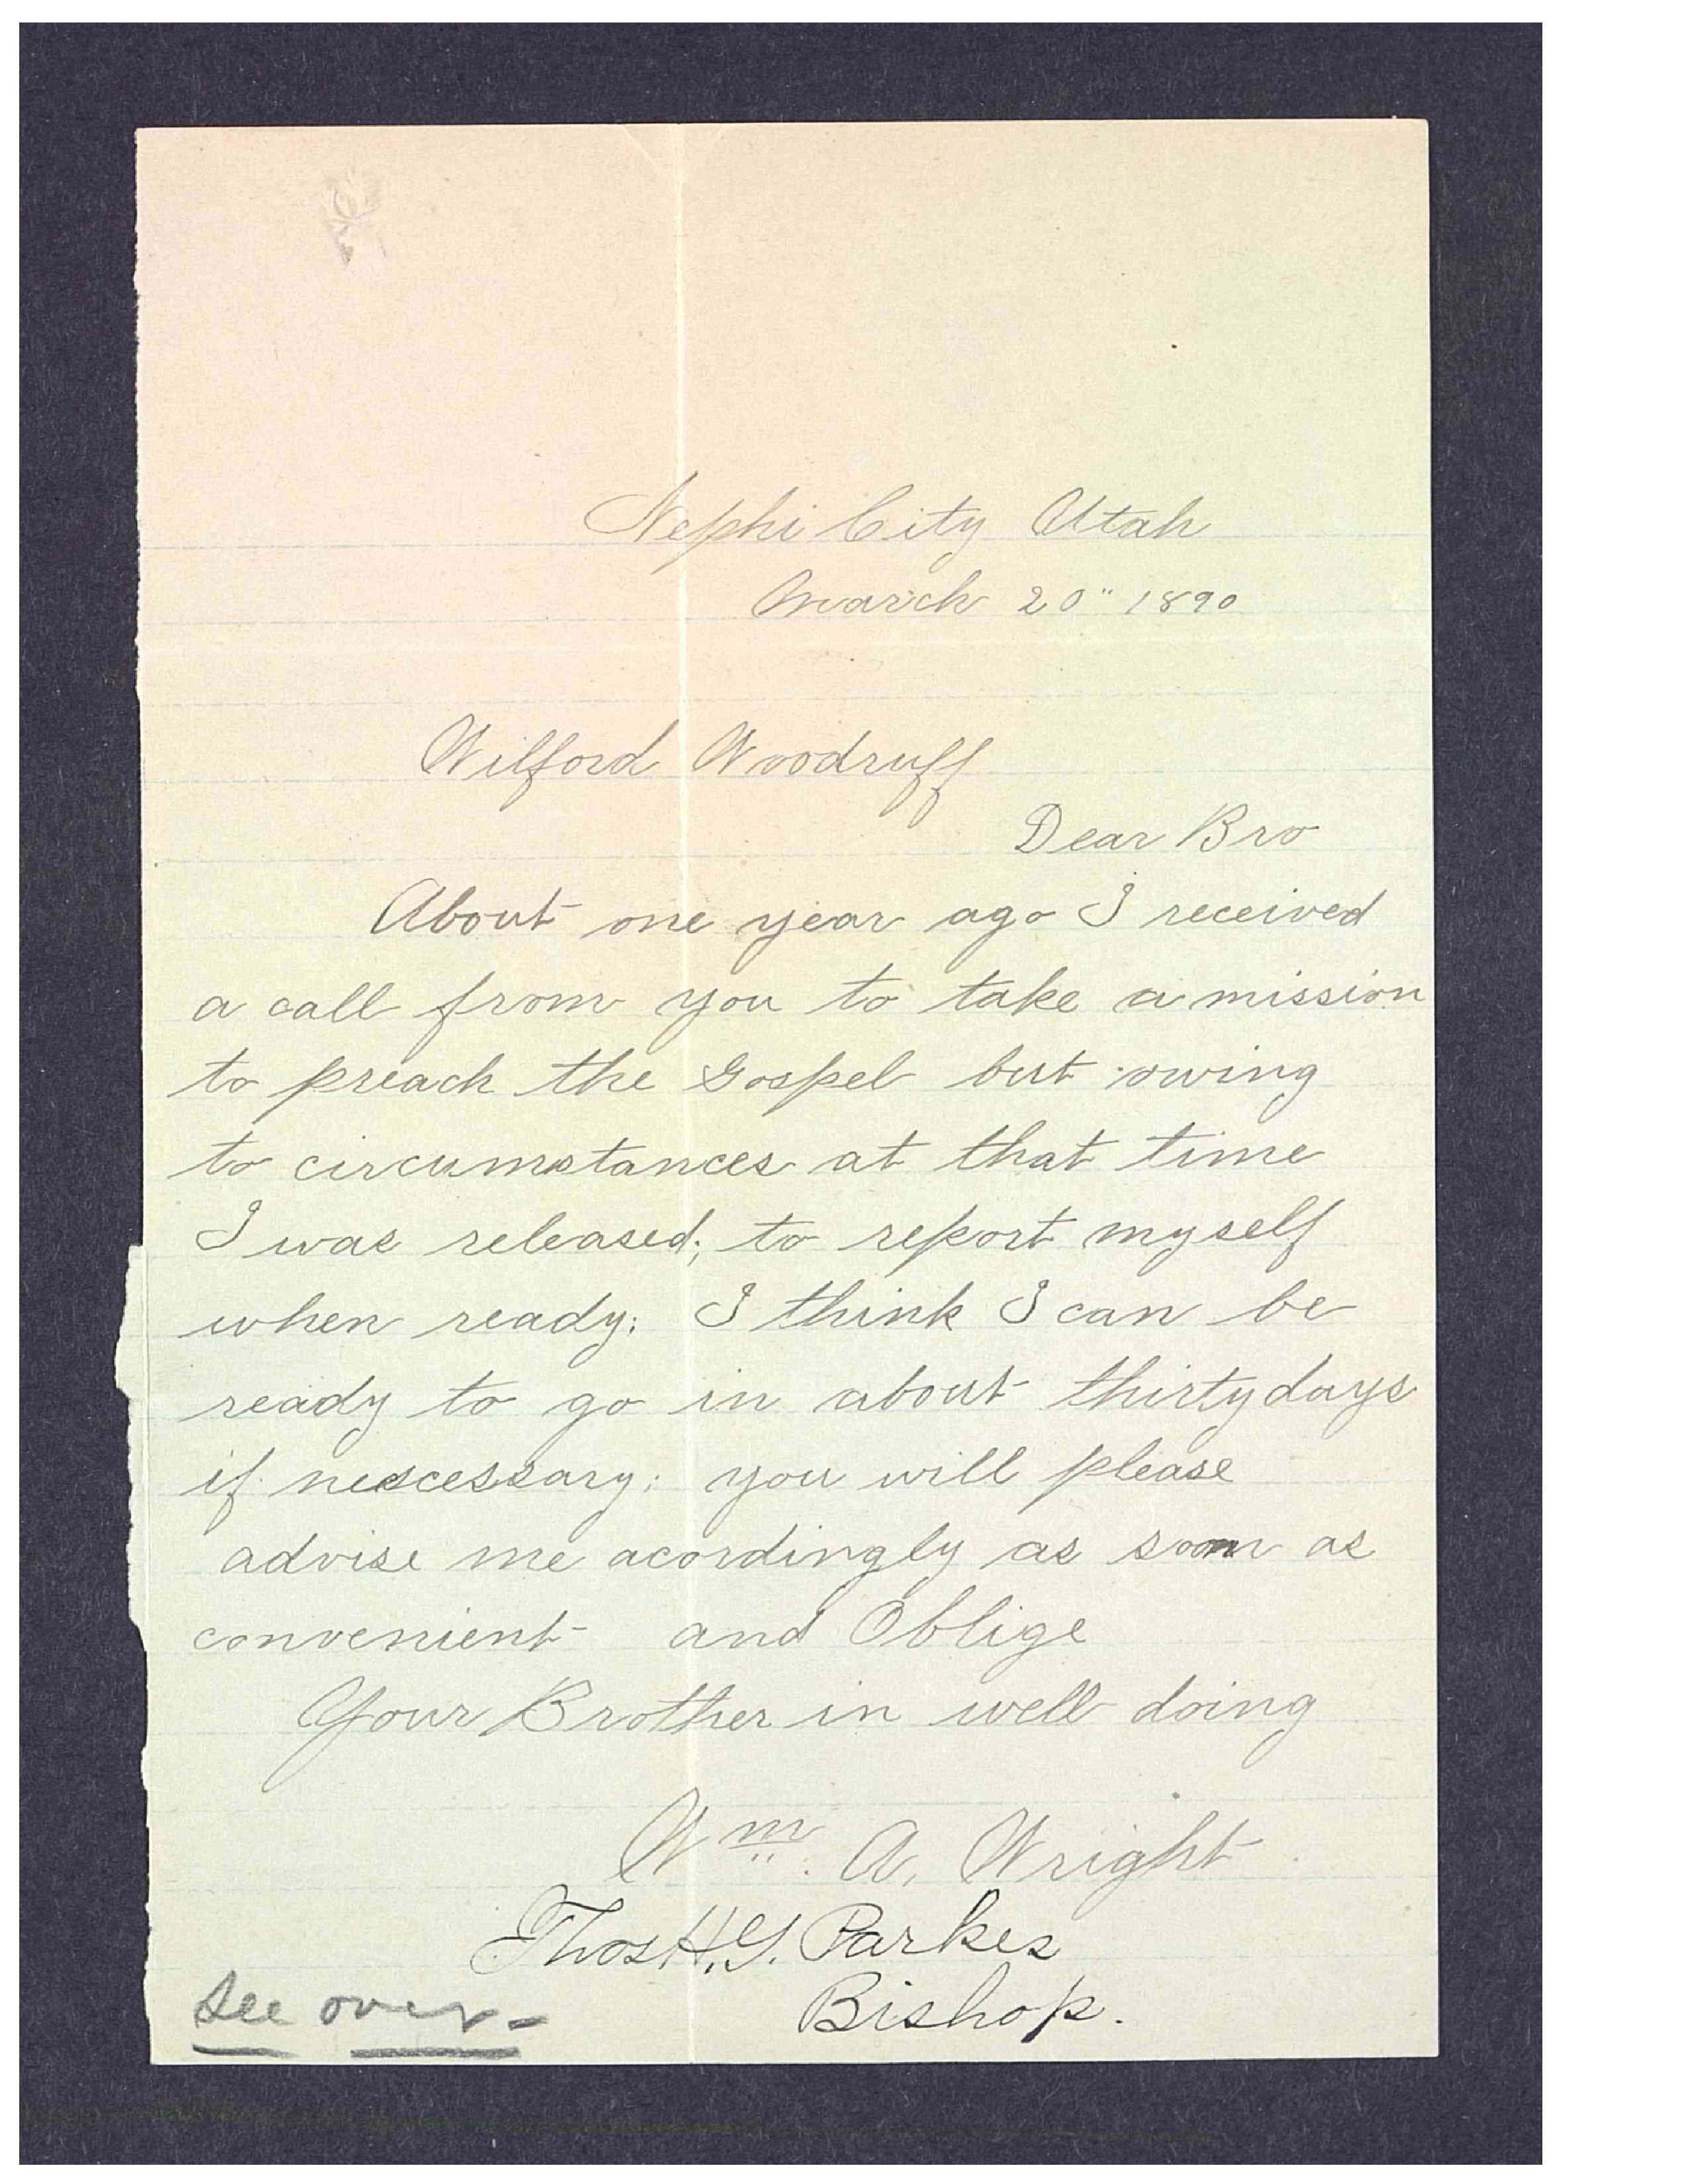 Nephi City Utah
March 20" 1890
Wilford Woodruff
Dear Bro
About one year ago I received
a call from you to take a mission
to preach the Gospel but owing
to circumstances at that time
I was released; to report myself
when ready; I think I can be
ready to go in about thirty days
if nescessary; you will please
advise me acordingly as soon as
convenient and Oblige
Your Brother in well doing
Wm. A. Wright
Thos H. G. Parkes
Bishop.
See over-